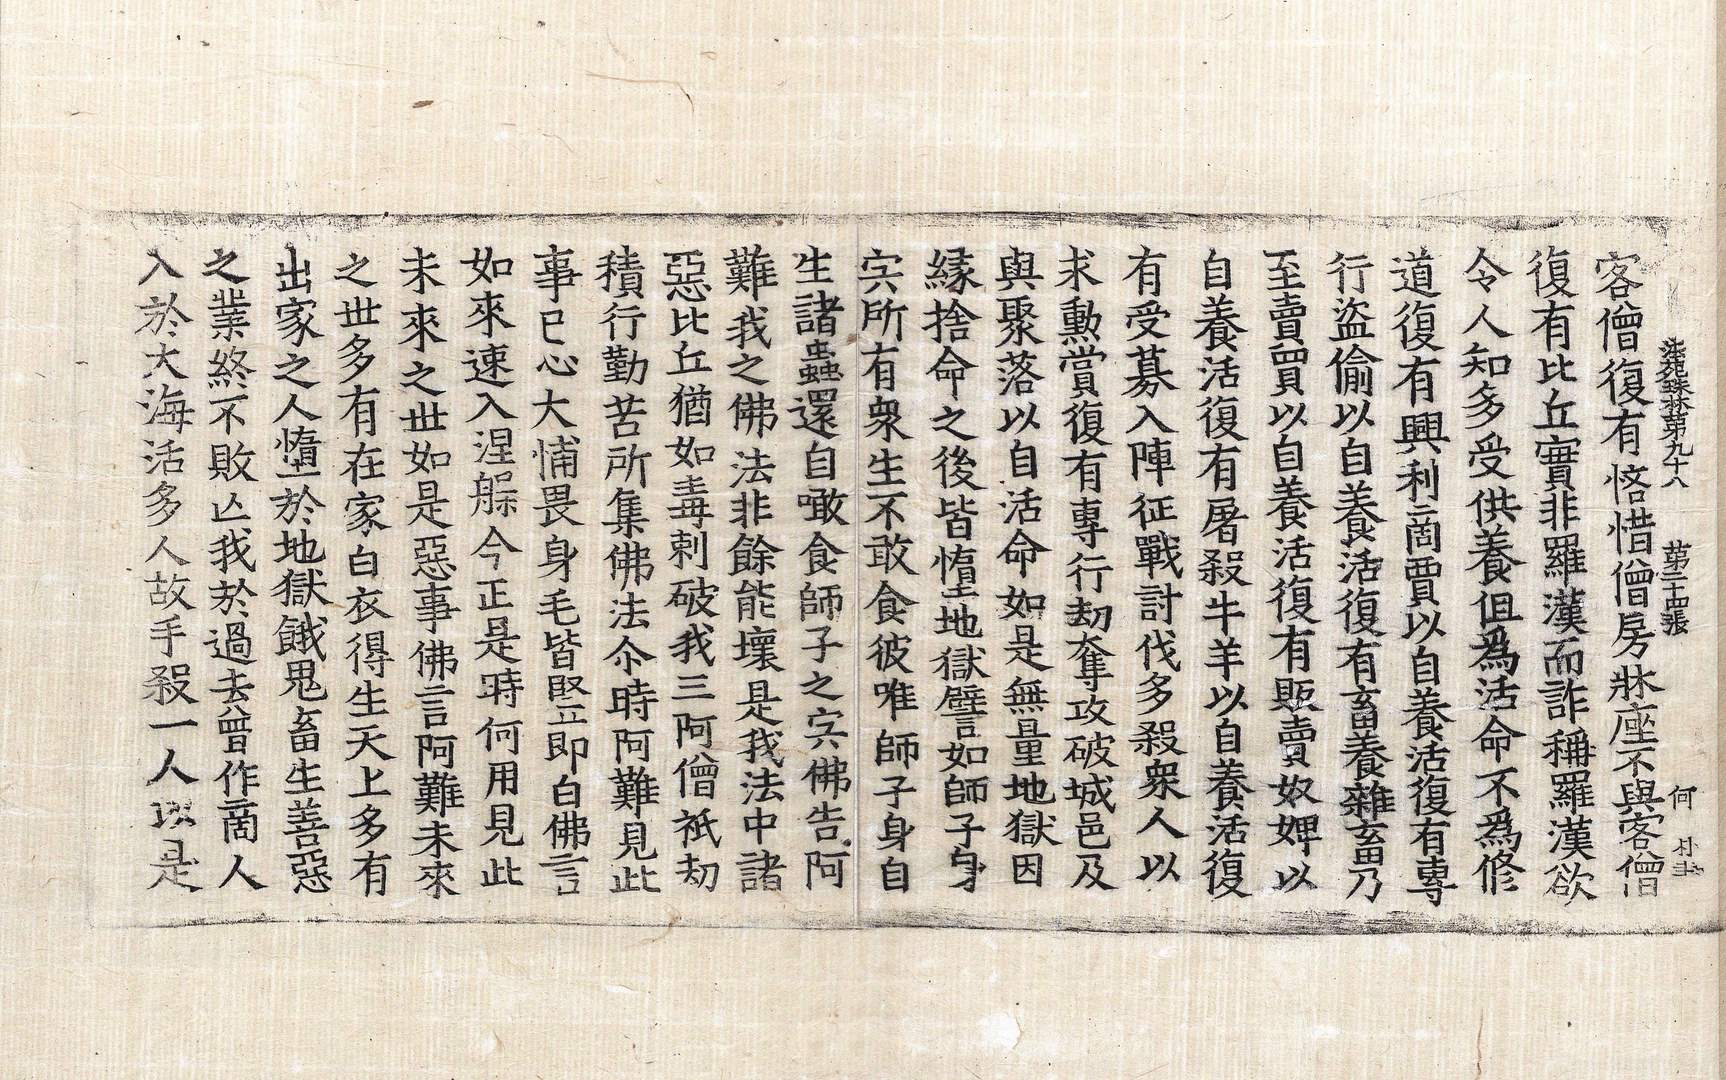 法苑珠林第九十八 第二十四張 何
客僧復有悋惜僧房牀座不與客僧
復有比丘實非羅漢而詐稱羅漢欲
令人知多受供養但爲活命不爲修
道復有興利商賈以自養活復有專
行盜偷以自養活復有畜養雜畜乃
至賣買以自養活復有販賣奴婢以
自養活復有屠殺牛羊以自養活復
有受募入陣征戰討伐多殺衆人以
求勳賞復有專行劫奪攻破城邑及
與聚落以自活命如是無量地獄因
緣捨命之後皆墮地獄譬如師子身
宍所有衆生不敢食彼唯師子身自
生諸蟲還自噉食師子之宍佛告阿
難我之佛法非餘能壞是我法中諸
惡比丘猶如毒刺破我三阿僧祇劫
積行勤苦所集佛法尒時阿難見此
事已心大怖畏身毛皆竪即白佛言
如來速入涅槃今正是時何用見此
未來之世如是惡事佛言阿難未來
之世多有在家白衣得生天上多有
出家之人墮於地獄餓鬼畜生善惡
之業終不敗亡我於過去曾作商人
入於大海活多人故手殺一人以是